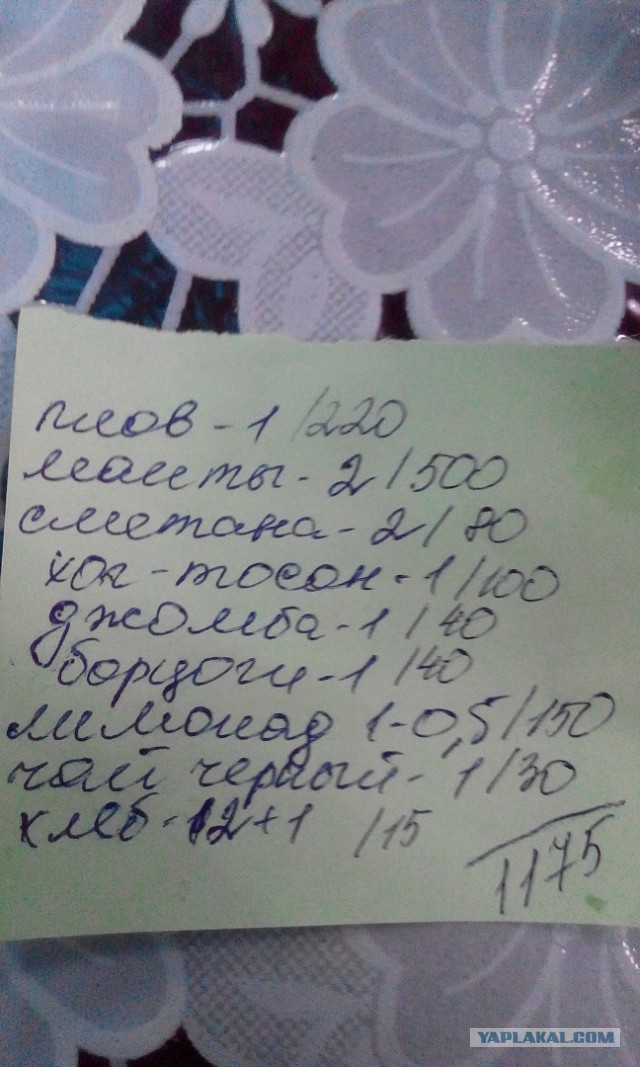 плов - 1 /220
манты - 2 /500
сметана - 2 / 80
хог - тосон - 1 /100
джомба - 1 / 40
борцоги - 1 /40
лимонад 1-0,5/150
чай черный - 1/30
хлеб - 2+1 /15
1175
YAPLAKAL.COM